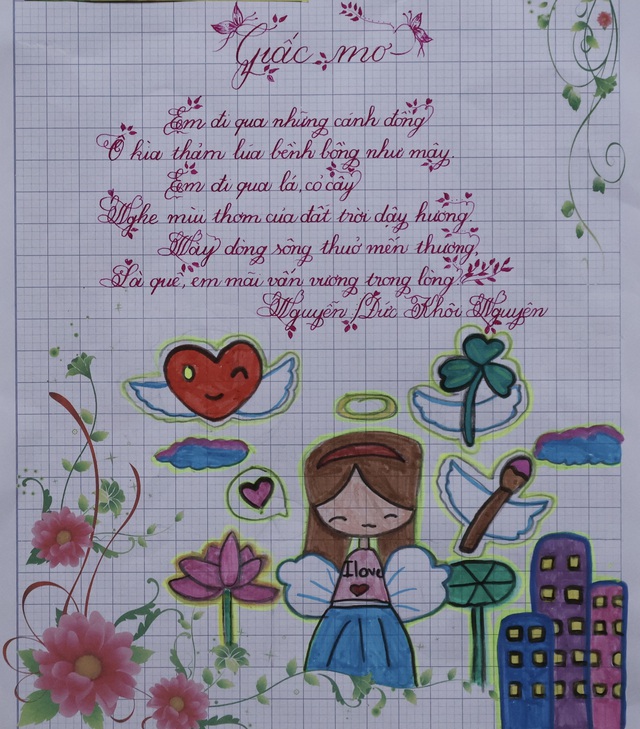 Giấc mơ
Em đi qua những cánh đồng
Ô kìa thảm lúa bềnh bồng như mây.
Em đi qua lá, cỏ cây
Nghe mùi thơm của đất trời dậy hương
Này dòng sông thuở mến thương
Là quê, em mãi vấn vương trong lòng.
Nguyễn Đức Khôi Nguyên
I love